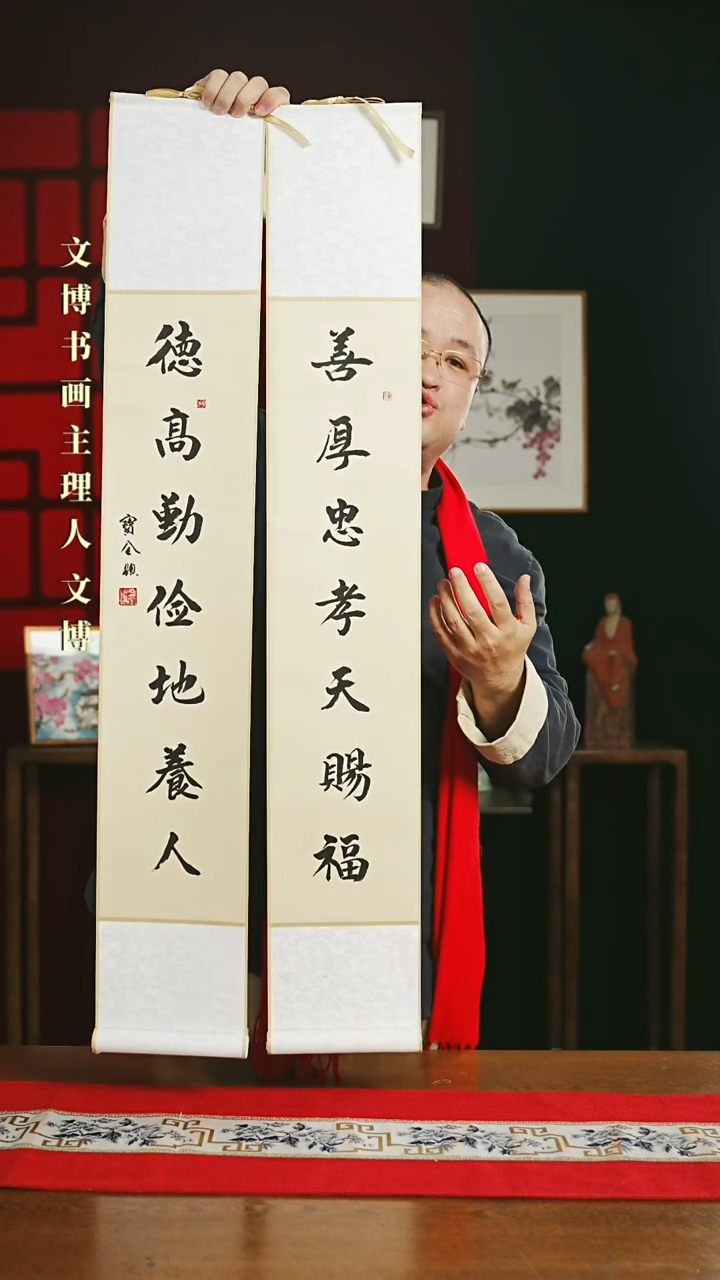 善厚忠孝天賜福
德高勤俭地養人
文博书画主理人文博